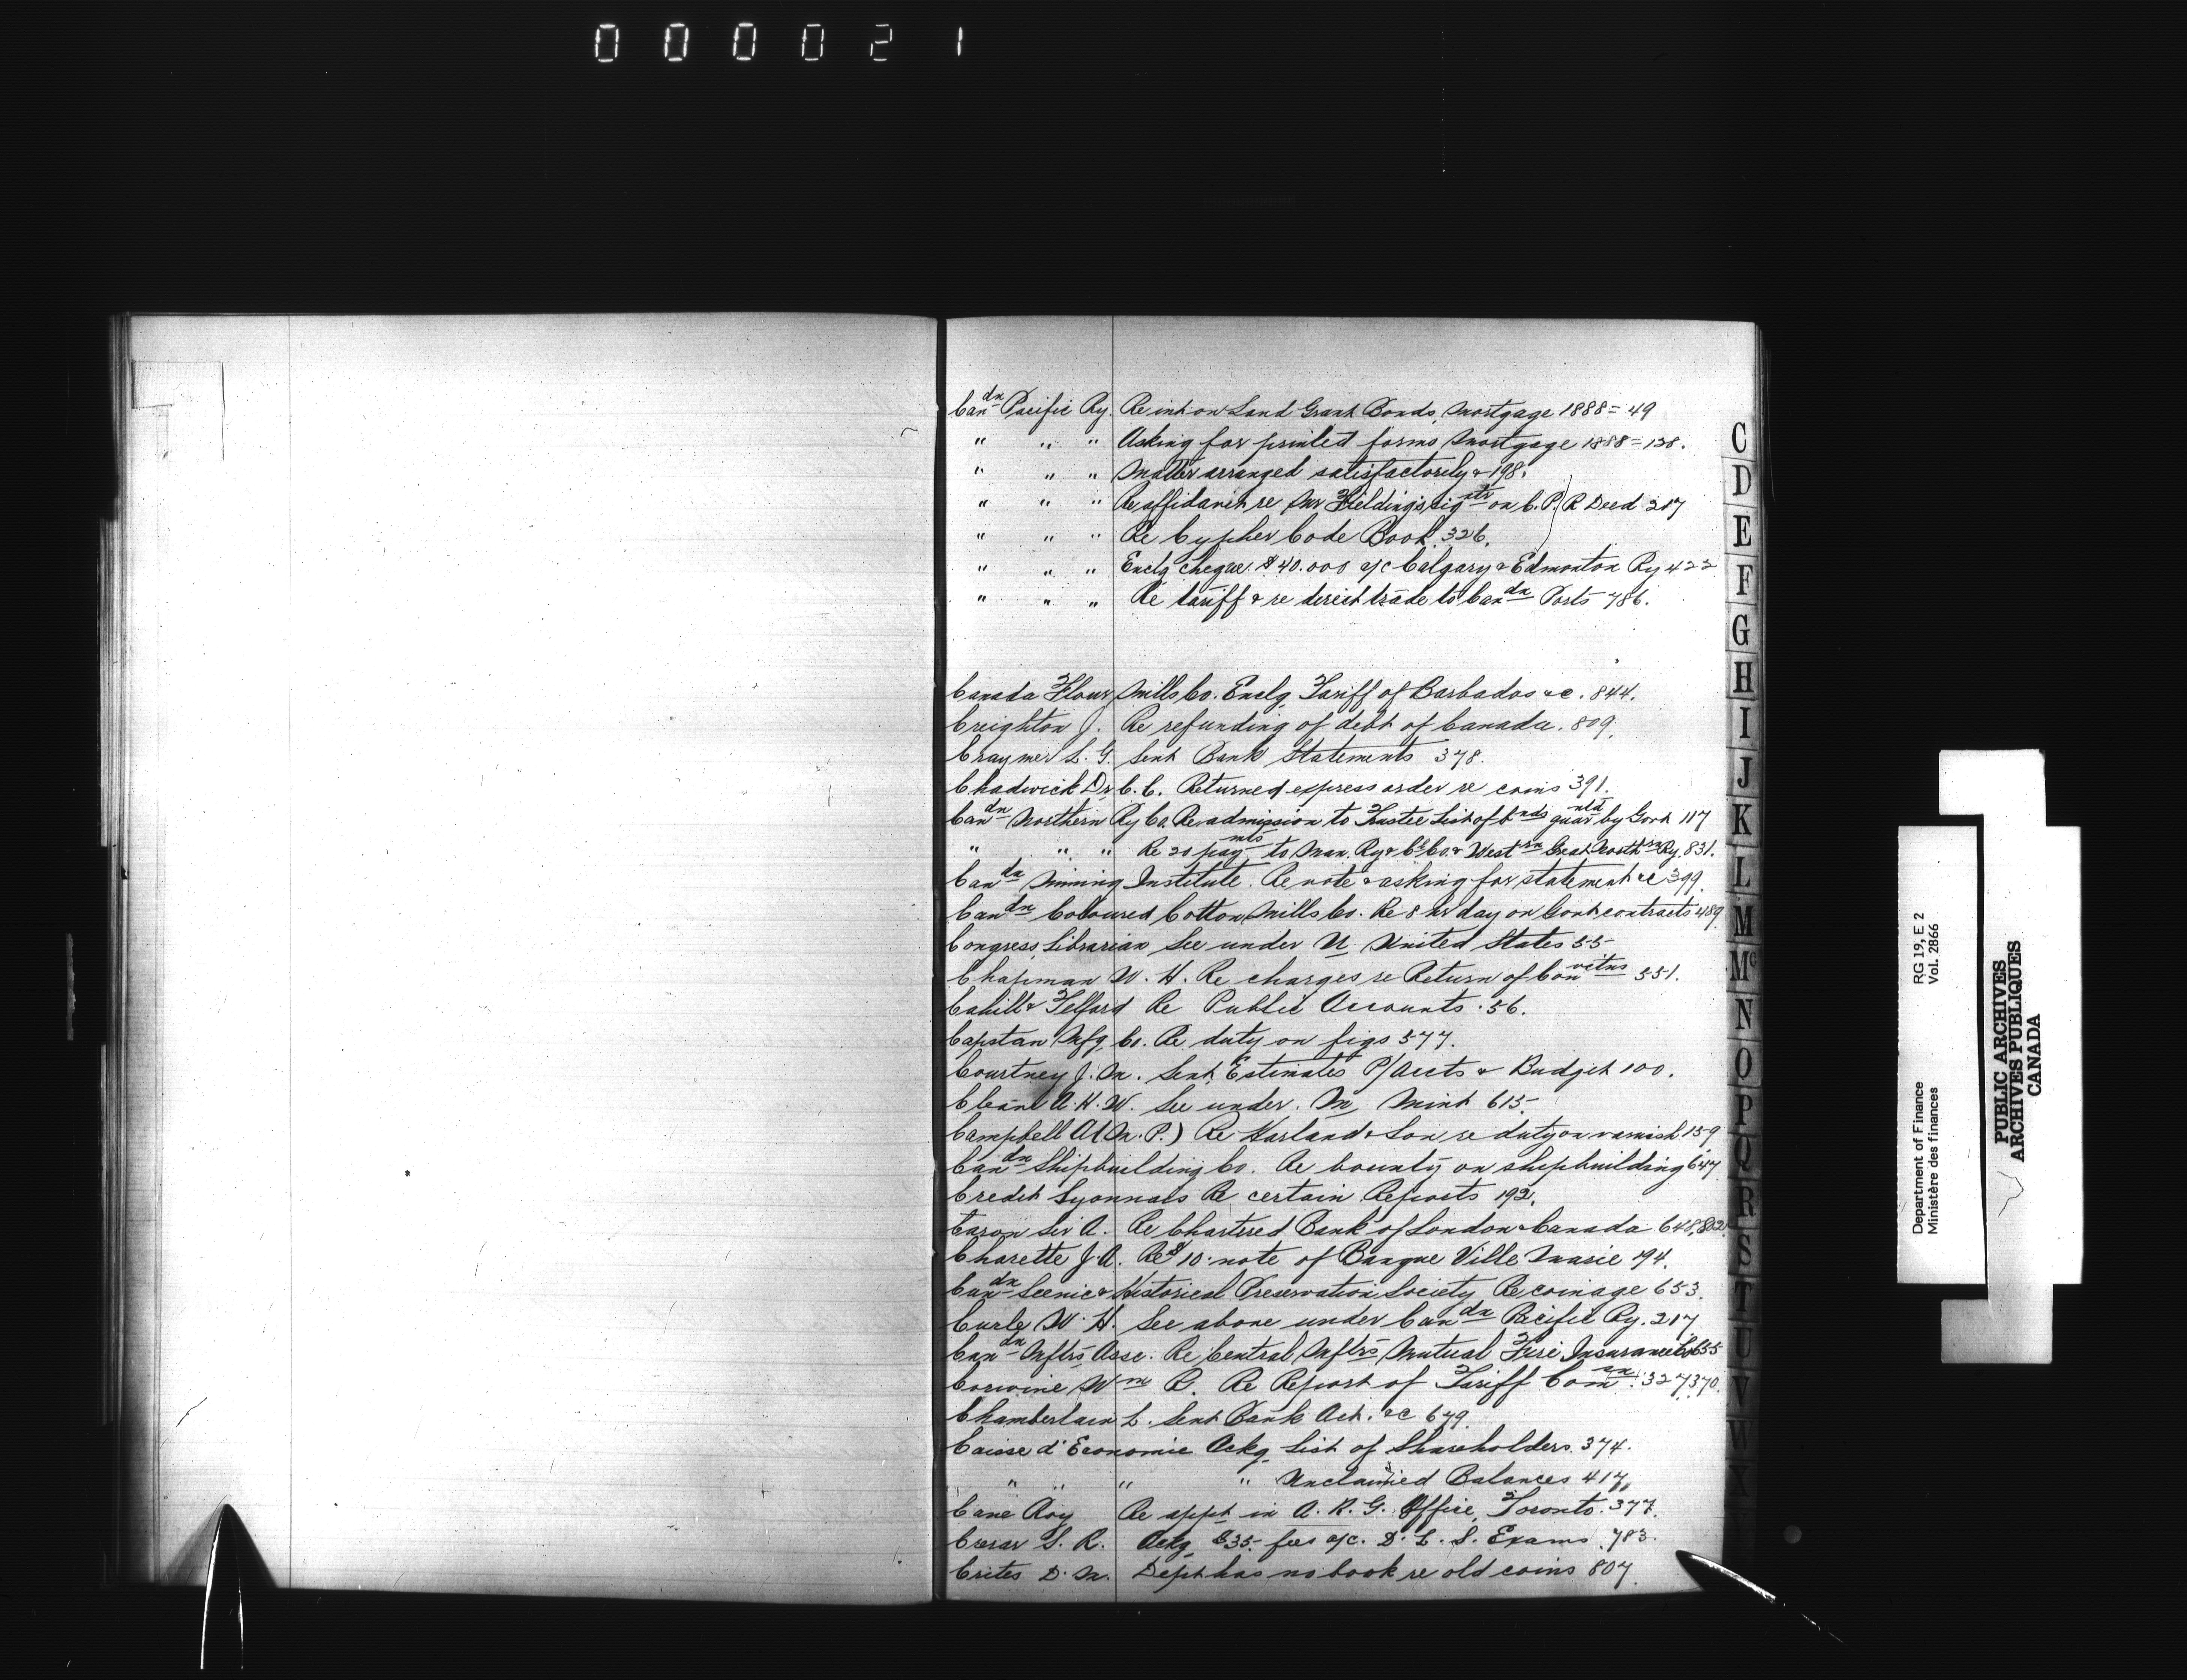 000021
Can dn Pacific Ry. Re int on Land Grant Bonds, Mortgage 1888 = 49
" " " Asking for printed forms Mortgage 1888 = 138.
" " " Matter arranged satisfactorily & 198.
" " " Re affidavit re Mr Fielding's sig atr on C.P.R Deed 217
" " " Re Cypher Code Book. 326.
" " " Enclg cheque $40.000 a/c Calgary & Edmonton Ry 422
" " " Re tariff & re direct trade to Can dn Ports 786.
Canada Flour Mills Co. Enclg Tariff of Barbados &c. 844.
Creighton J. Re refunding of debt of Canada. 809.
Craymer L. G. Sent Bank Statements 378.
Chadwick Dr C. C. Returned express order re coins 391.
Can dn Northern Ry Co. Re admission to Trustee List of b nds guar ntd by Govt 117
" " " Re 20 pay mts to Man. Ry & Co. & West rn Great North rn Ry. 831.
Can dn Mining Institute. Re note & asking for statement &c 399.
Can dn Coloured Cotton Mills Co. Re 8 hr day on Govt contracts 489.
Congress, Librarian See under U United States 55
Chapman W. H. Re charges re Return of Con victns 551.
Cahill & Telford Re Public Accounts. 56.
Capstan Mfg Co. Re duty on figs 577.
Courtney J. M. Sent Estimates P/Accts & Budget 100.
A. H. W. See under. M Mint 615.
Campbell A (M.P.) Re Harland & Son re duty on varnish 159
Can dn Shipbuilding Co. Re bounty on shipbuilding 647
Credit Lyonnais Re certain Reports 192.
Caron Sir A. Re Chartered Bank of London & Canada 648, 802.
Charette J. A. Re $10 note of Banque Ville Marie 194.
Can dn Scenic & Historical Preservation Society Re coinage 653.
Curle W. H. See above under Can dn Pacific Ry. 217
Can dn Mftrs Assc. Re Central Mftrs Mutual Fire Insurance Co 655
Corwine Wm R. Re Report of Tariff Com sn. 327, 370.
Chamberlain L. Sent Bank Act. &c 679.
Caisse d'Economie Ackg List of Shareholders. 374.
" " " " Unclaimed Balances 417,
Cane Roy Re appt in A. R. G. Office, Toronto. 377.
S. R. Ackg $35 fees a/c. D. L. S. Exams. 783.
Crites D. M. Dept has no book re old coins 807.
C
D
E
F
G
H
I
J
K
L
M
Mc
N
O
P
Q
R
S
T
U
V
W
X
Department of Finance RG 19, E 2
Ministère des finances Vol. 2866
PUBLIC ARCHIVES
ARCHIVES PUBLIQUES
CANADA